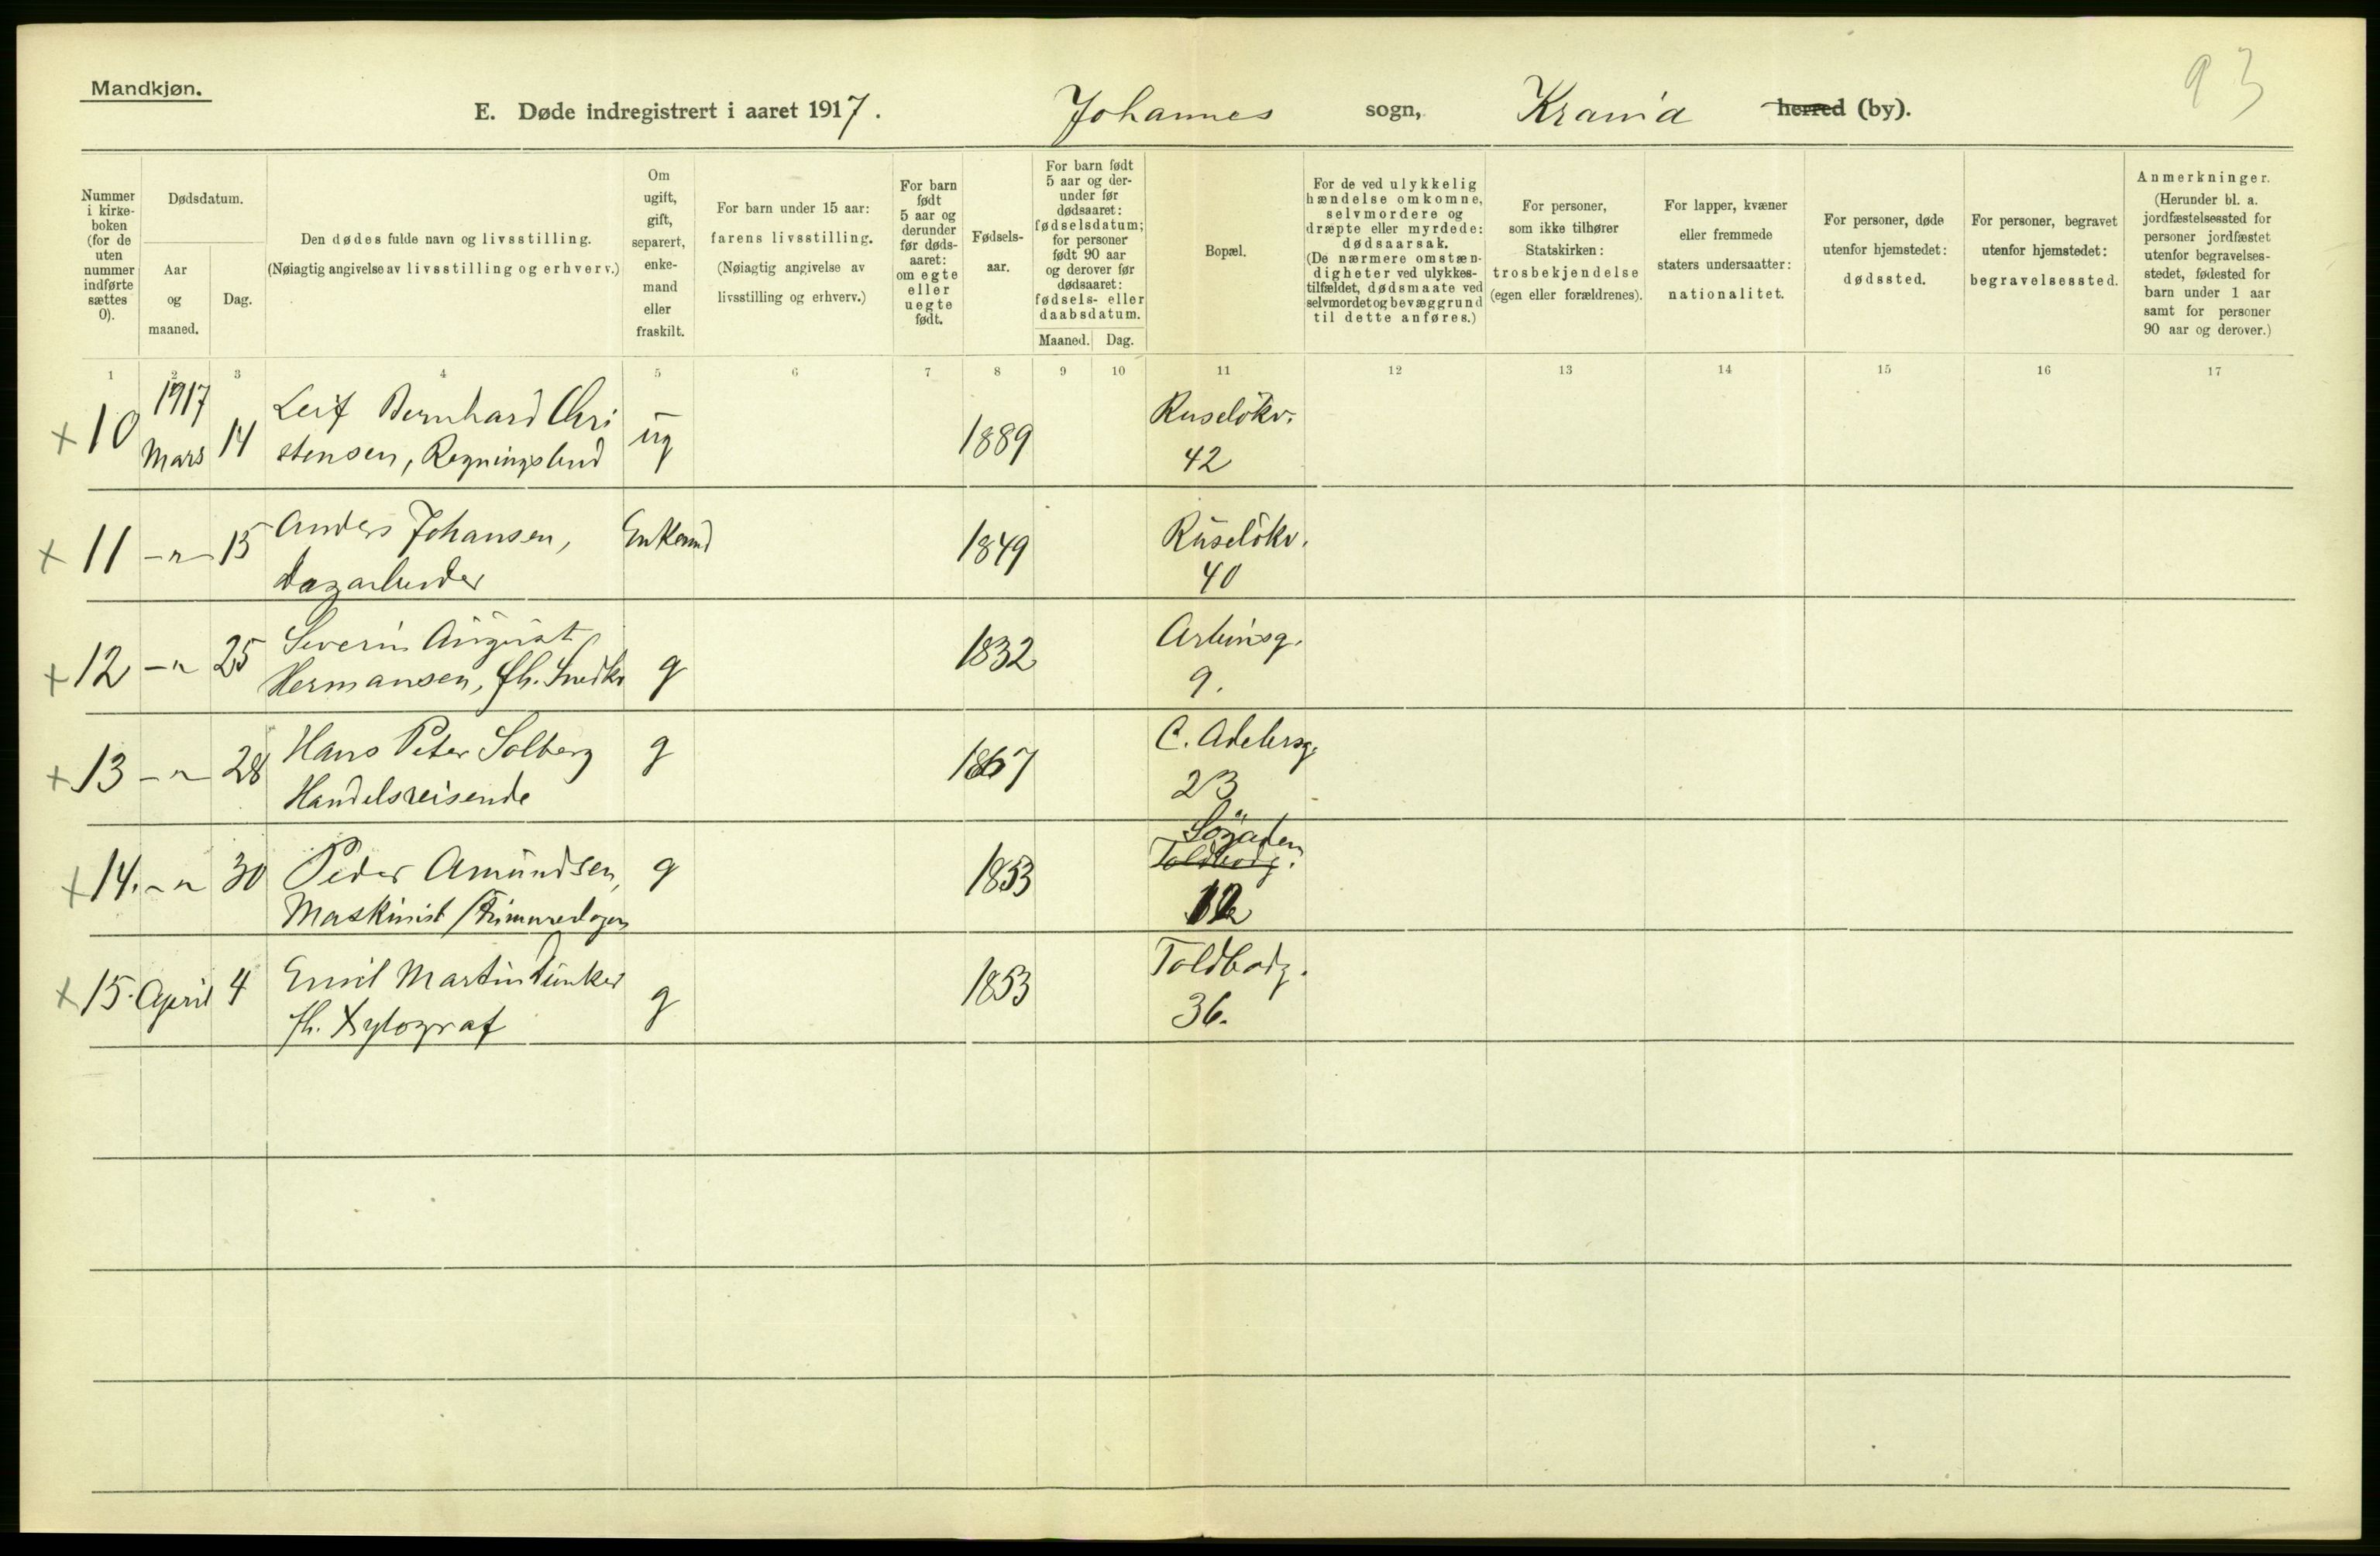 Mandkjøn.
93
E. Døde indregistrert i aaret 1917. Johannes sogn, Krania herred (by).
Nummer i kirke- boken (for de uten nummer indførte sættes 0).
Dødsdatum.
Aar og maaned.
Dag.
Den dødes fulde navn og livsstilling.
(Nøiagtig angivelse av livsstilling og erhverv.)
Om ugift, gift, separert, enke- mand eller fraskilt.
For barn under 15 aar:
farens livsstilling.
(Nøiagtig angivelse av
livsstilling og erhverv.)
For barn født 5 aar og derunder før døds- aaret: om egte eller uegte født.
Fødsels- aar.
For barn født 5 aar og der- under før dødsaaret: fødselsdatum; for personer født 90 aar og derover før dødsaaret: fødsels- eller daabsdatum.
Maaned. Dag.
Bopæl.
For de ved ulykkelig hændelse omkomne, selvmordere og dræpte eller myrdede: dødsaarsak. (De nærmere omstæn- digheter ved ulykkes- tilfældet, dødsmaate ved selvmordet og bevæggrund til dette anføres.)
For personer, som ikke tilhører Statskirken: trosbekjendelse (egen eller forældrenes).
For lapper, kvæner eller fremmede staters undersaatter: nationalitet.
For personer, døde utenfor hjemstedet: dødssted.
For personer, begravet utenfor hjemstedet: begravelsessted.
Anmerkninger. (Herunder bl. a. jordfæstelsessted for personer jordfæstet utenfor begravelses- stedet, fødested for barn under 1 aar samt for personer 90 aar og derover.)
1 2 3 4 5 6 7 8 9 10 11 12 13 14 15 16 17
1917 Leif Bernhard Chri Ruseløkv.
+ 10 Mars 14 stensen, Regningsbud ug 1889 42
+ 11 -"- 15 Anders Johansen, Enkemd 1849 Ruseløkv.
dagarbeider 40
Severin August Arbinsg.
+ 12 -" 25 Hermansen, fh. Snedker g 1832 9.
+ 13 -"- 28 Hans Peter Solberg g 1867 C. Adelersg.
Handelsreisende 23
Søgaden
+ 14. -"- 30 Peder Amundsen, g 1853 Toldbodg.
Maskinist 12
+ 15. April 4 Emil Martin Dunker g 1853 Toldbodg.
fh. Xylograf 36.